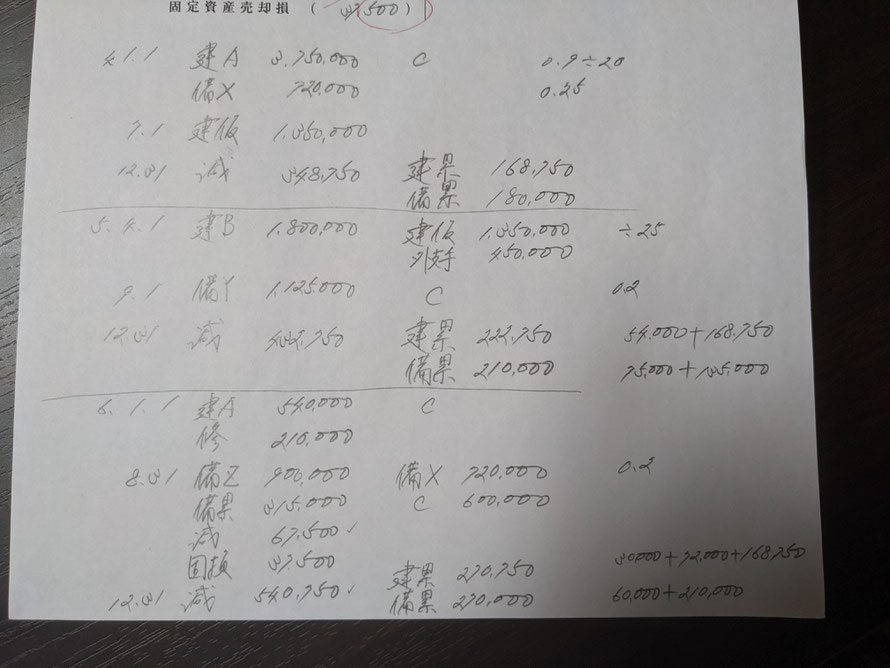 固定資産売却損 ( 37,500 )
4.1.1 建A 3,750,000 C 0.9÷20
備X 720,000 0.25
7.1 建仮 1,350,000
12.31 減 348,750 建累 168,750
備累 180,000
5.4.1 建B 1,800,000 建仮 1,350,000 ÷25
引支手 450,000
9.1 備Y 1,125,000 C 0.2
12.31 減 432,750 建累 222,750 54,000+168,750
備累 210,000 75,000+135,000
6.1.1 建A 540,000 C
修 210,000
8.31 備Z 900,000 備X 720,000 0.2
備累 315,000 C 600,000
減 67,500
固損 37,500
建累 270,750 30,000+72,000+168,750
12.31 減 540,750 備累 270,000 60,000+210,000